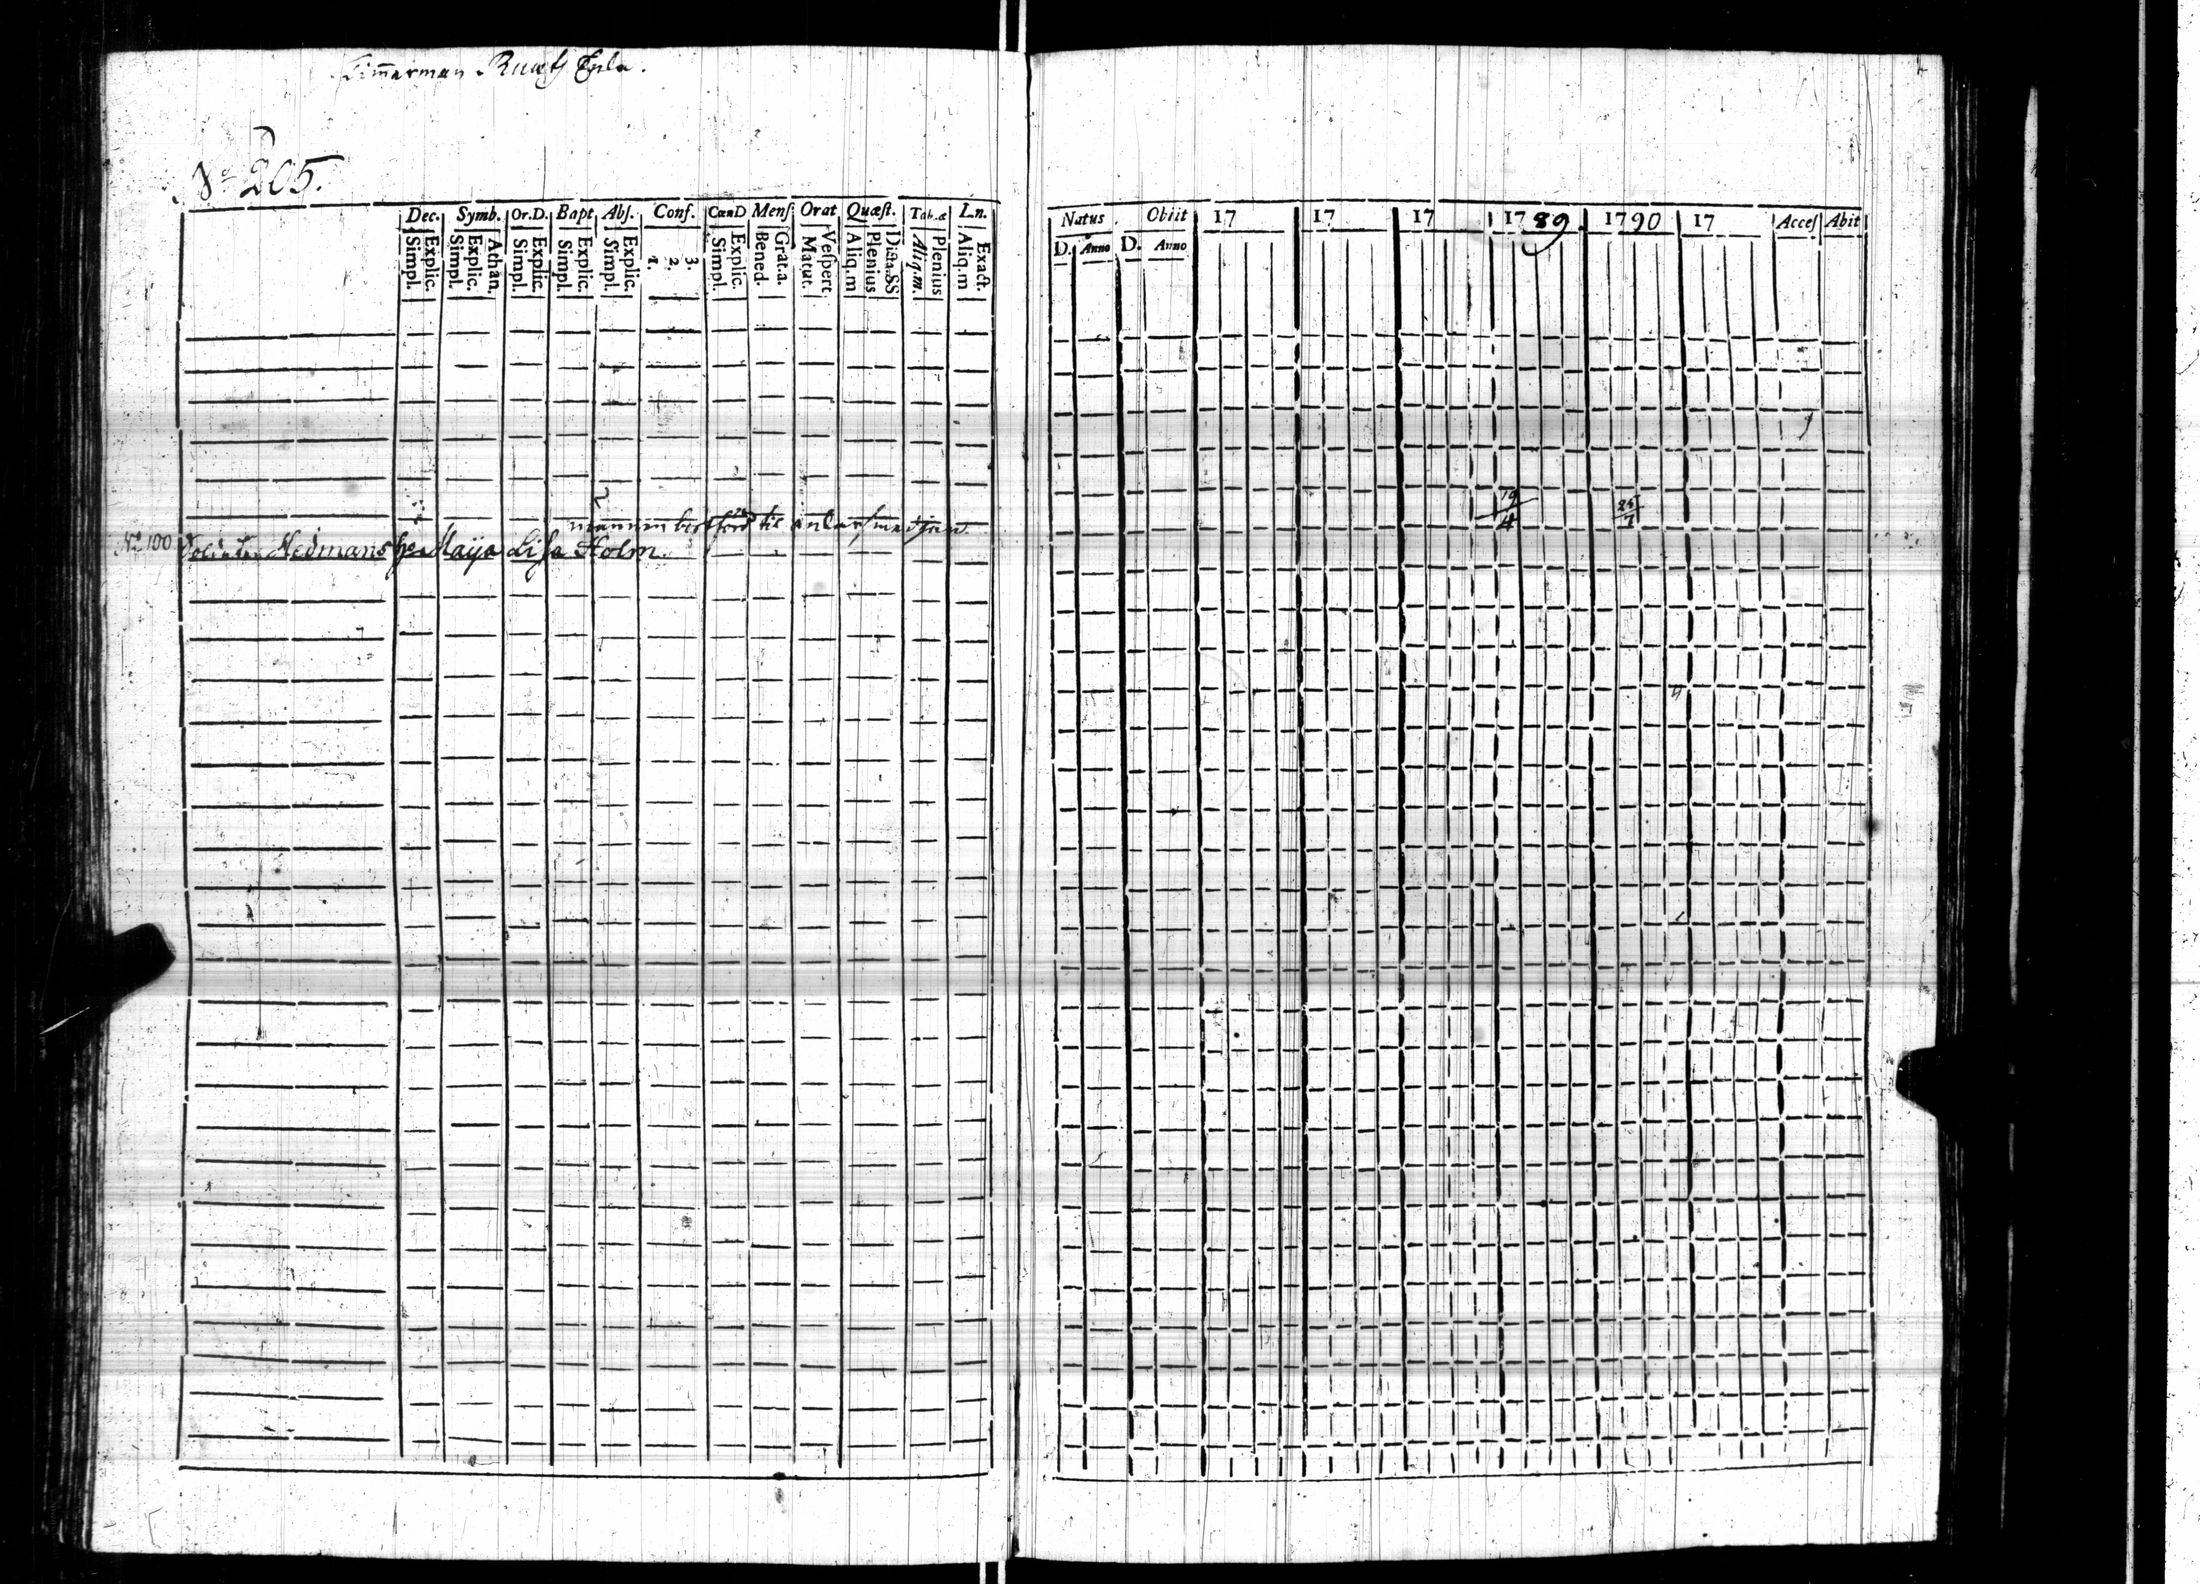 Timmerman
No 205.
Dec. Symb. Or.D. Bapt Abs. Conf. CœnD Mens Orat Quæst. Tab.æ Ln.
Simpl. Explic. Simpl. Explic. Athan. Simpl. Explic. Simpl. Explic. Simpl. Explic. 1. 2. 3. Simpl. Explic. Bened. Grat.a. Matut. Vespert Aliq.m Plenius Dicta SS Aliq.m. Plenius Aliq.m Exact.
mannen til
No 100 Hedmans Maija Lisa Holm.
Natus Obiit 17 17 17 1789. 1790 17 Acces Abit
D. Anno D. Anno
19/4 25/7